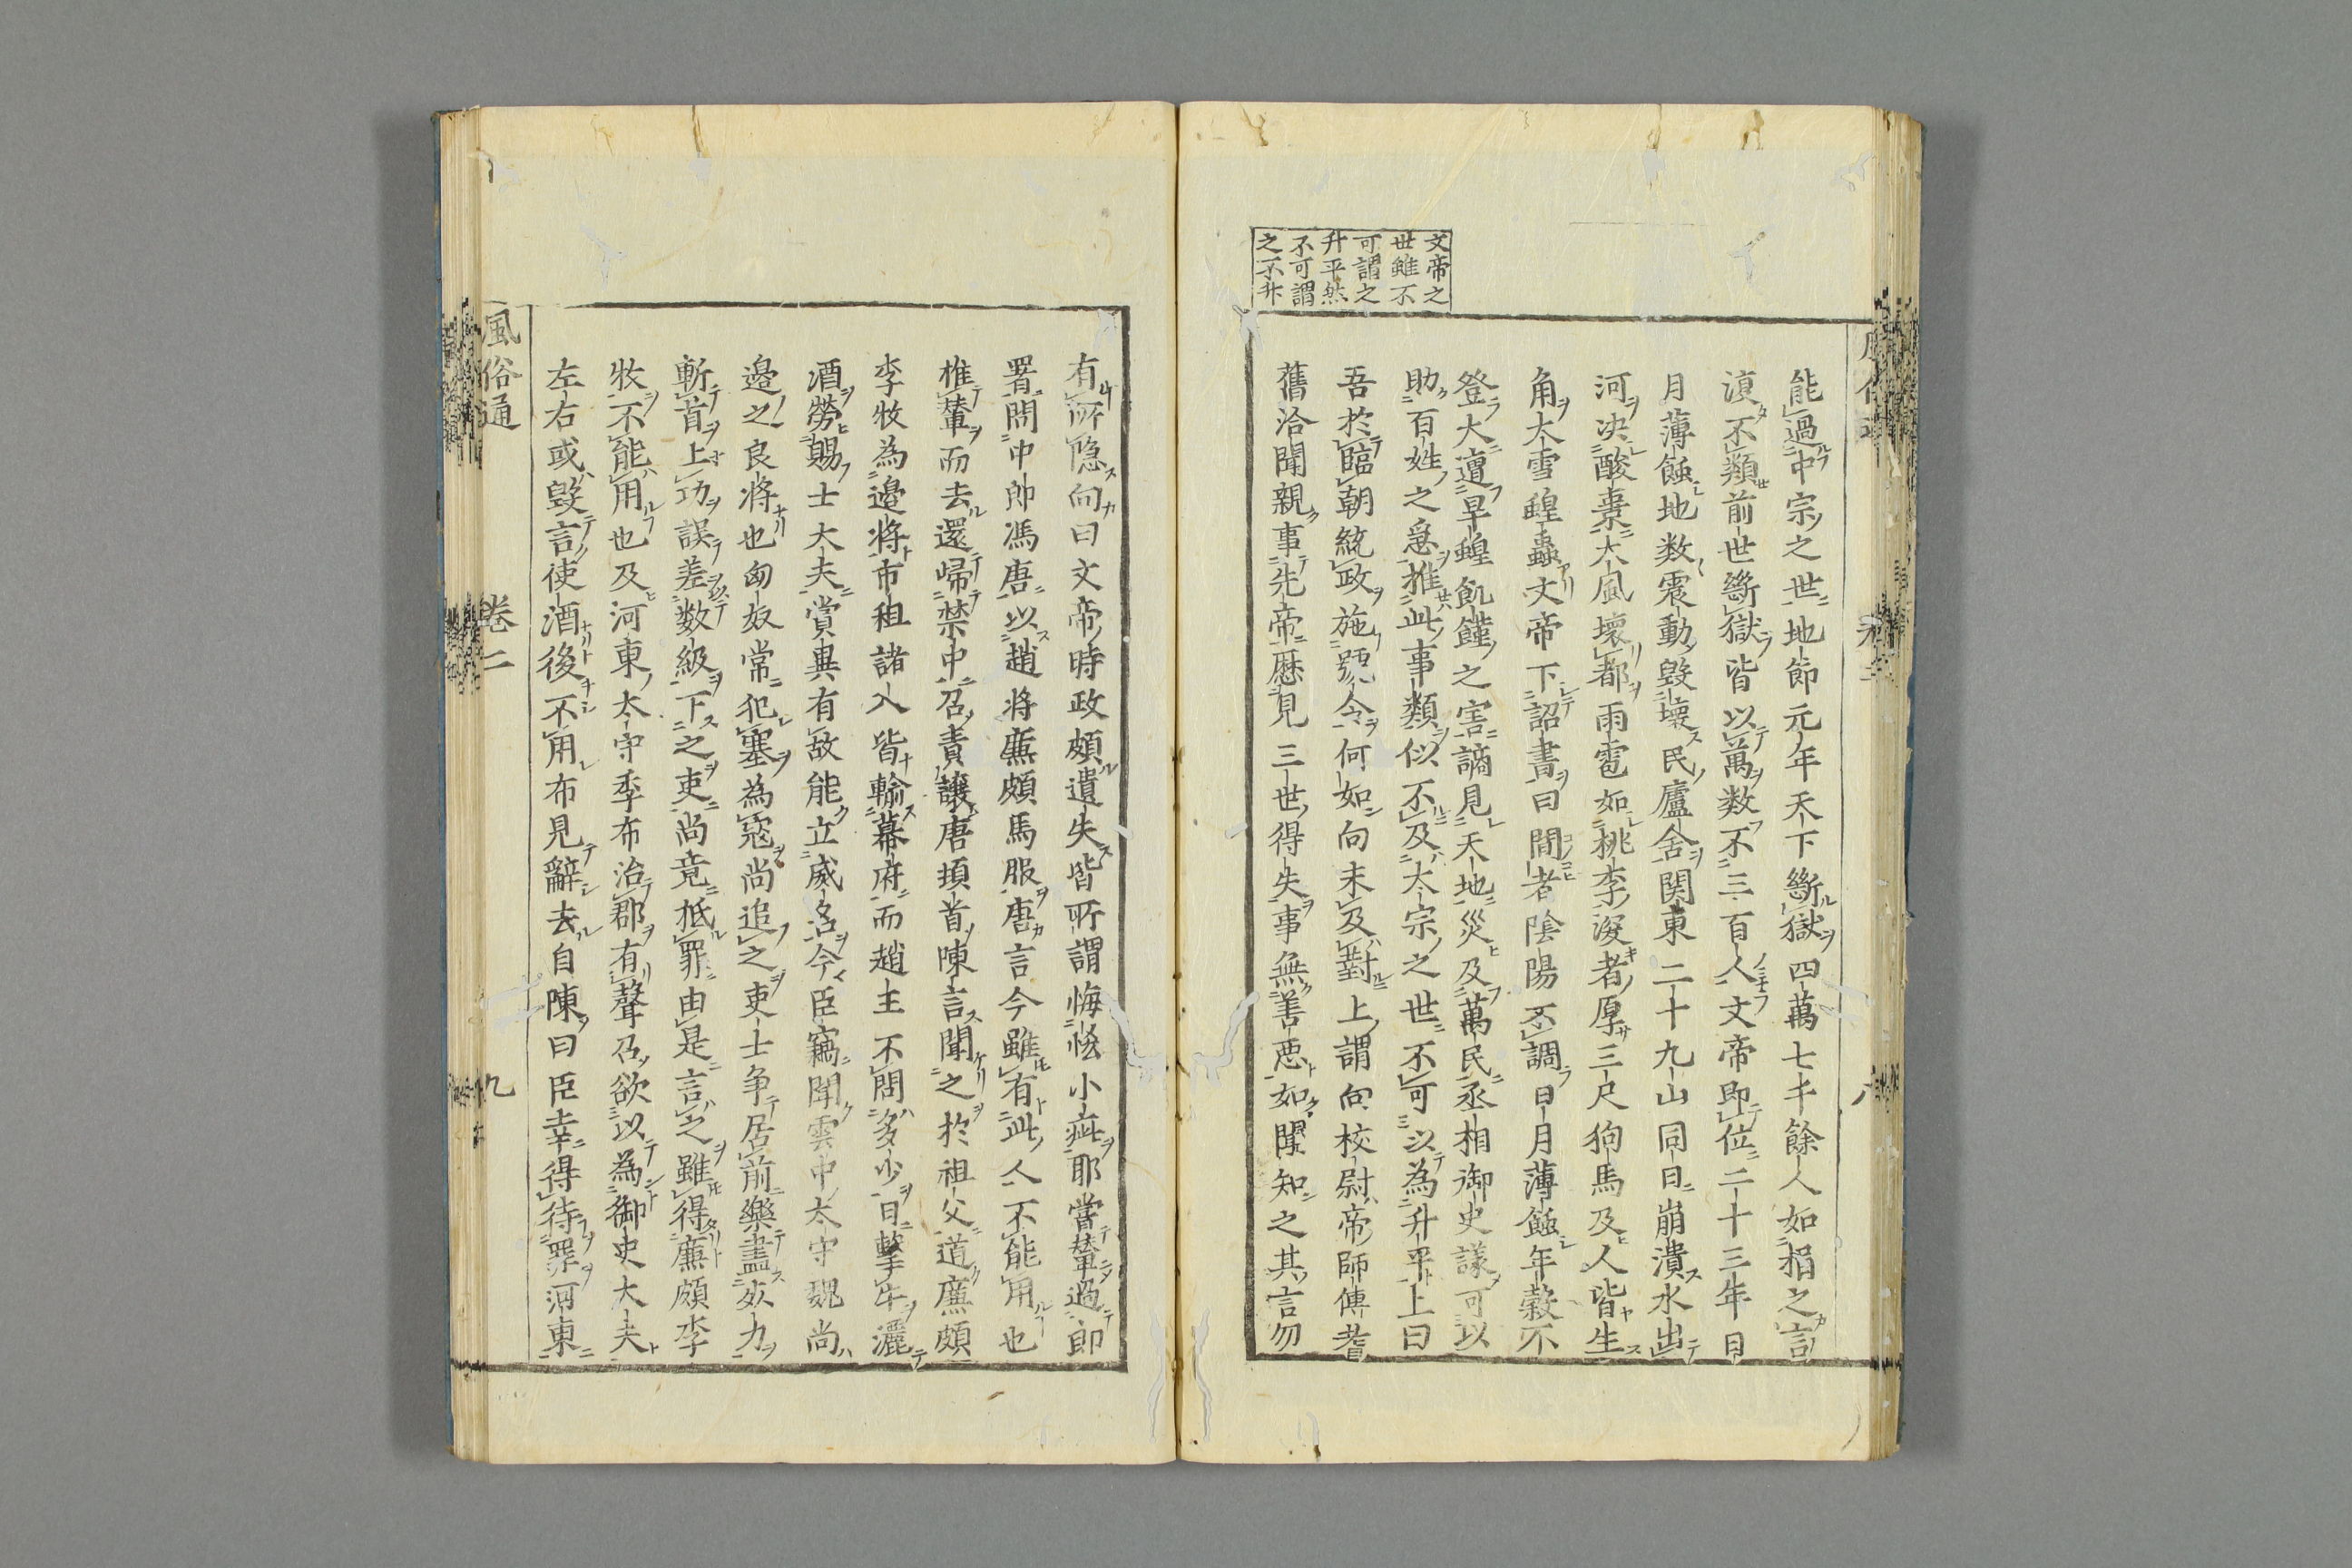 文帝之
世雖不
可謂之
升平然
不可謂
之不升
能過中宗之世地節元年天下斷獄四萬七千餘人如捐之言
復不類前世斷獄皆以萬数不三百人文帝即位二十三年日
月薄蝕地数震動毀壊民廬舎関東二十九山同日崩潰水出
河決酸棗大風壊都雨雹如桃李深者厚三尺狗馬及人皆生
角大雪蝗蟲文帝下詔書曰間者陰陽不調日月薄蝕年穀不
登大遭旱蝗飢饉之害謫見天地災及萬民丞相御史議可以
助百姓之急推此事類似不及太宗之世不可以為升平上曰
吾於臨朝統政施号令何如向未及對上謂向校尉帝師傅耆
舊洽聞親事先帝歴見三世得失事無善悪如聞知之其言勿
有所隐向曰文帝時政頗遺失皆所謂悔恡小疵耶嘗輦過郎
署問中郎馮唐以趙将廉頗馬服唐言今雖有此人不能用也
推輦而去還帰禁中召責讓唐頓首陳言聞之於祖父道廉頗
李牧為邊将市租諸入皆輸幕府而趙主不問多少日撃牛灑
酒勞賜士大夫賞異有故能立威名今臣竊聞雲中太守魏尚
邉之良将也匈奴常犯塞為宼尚追之吏士争居前樂盡死力
斬首上功誤差数級下之吏尚竟抵罪由是言之雖得廉頗李
牧不能用也及河東太守季布治郡有聲召欲以為御史大夫
左右或毀言使酒後不用布見辭去自陳曰臣幸得待罪河東
風俗通
卷二
九